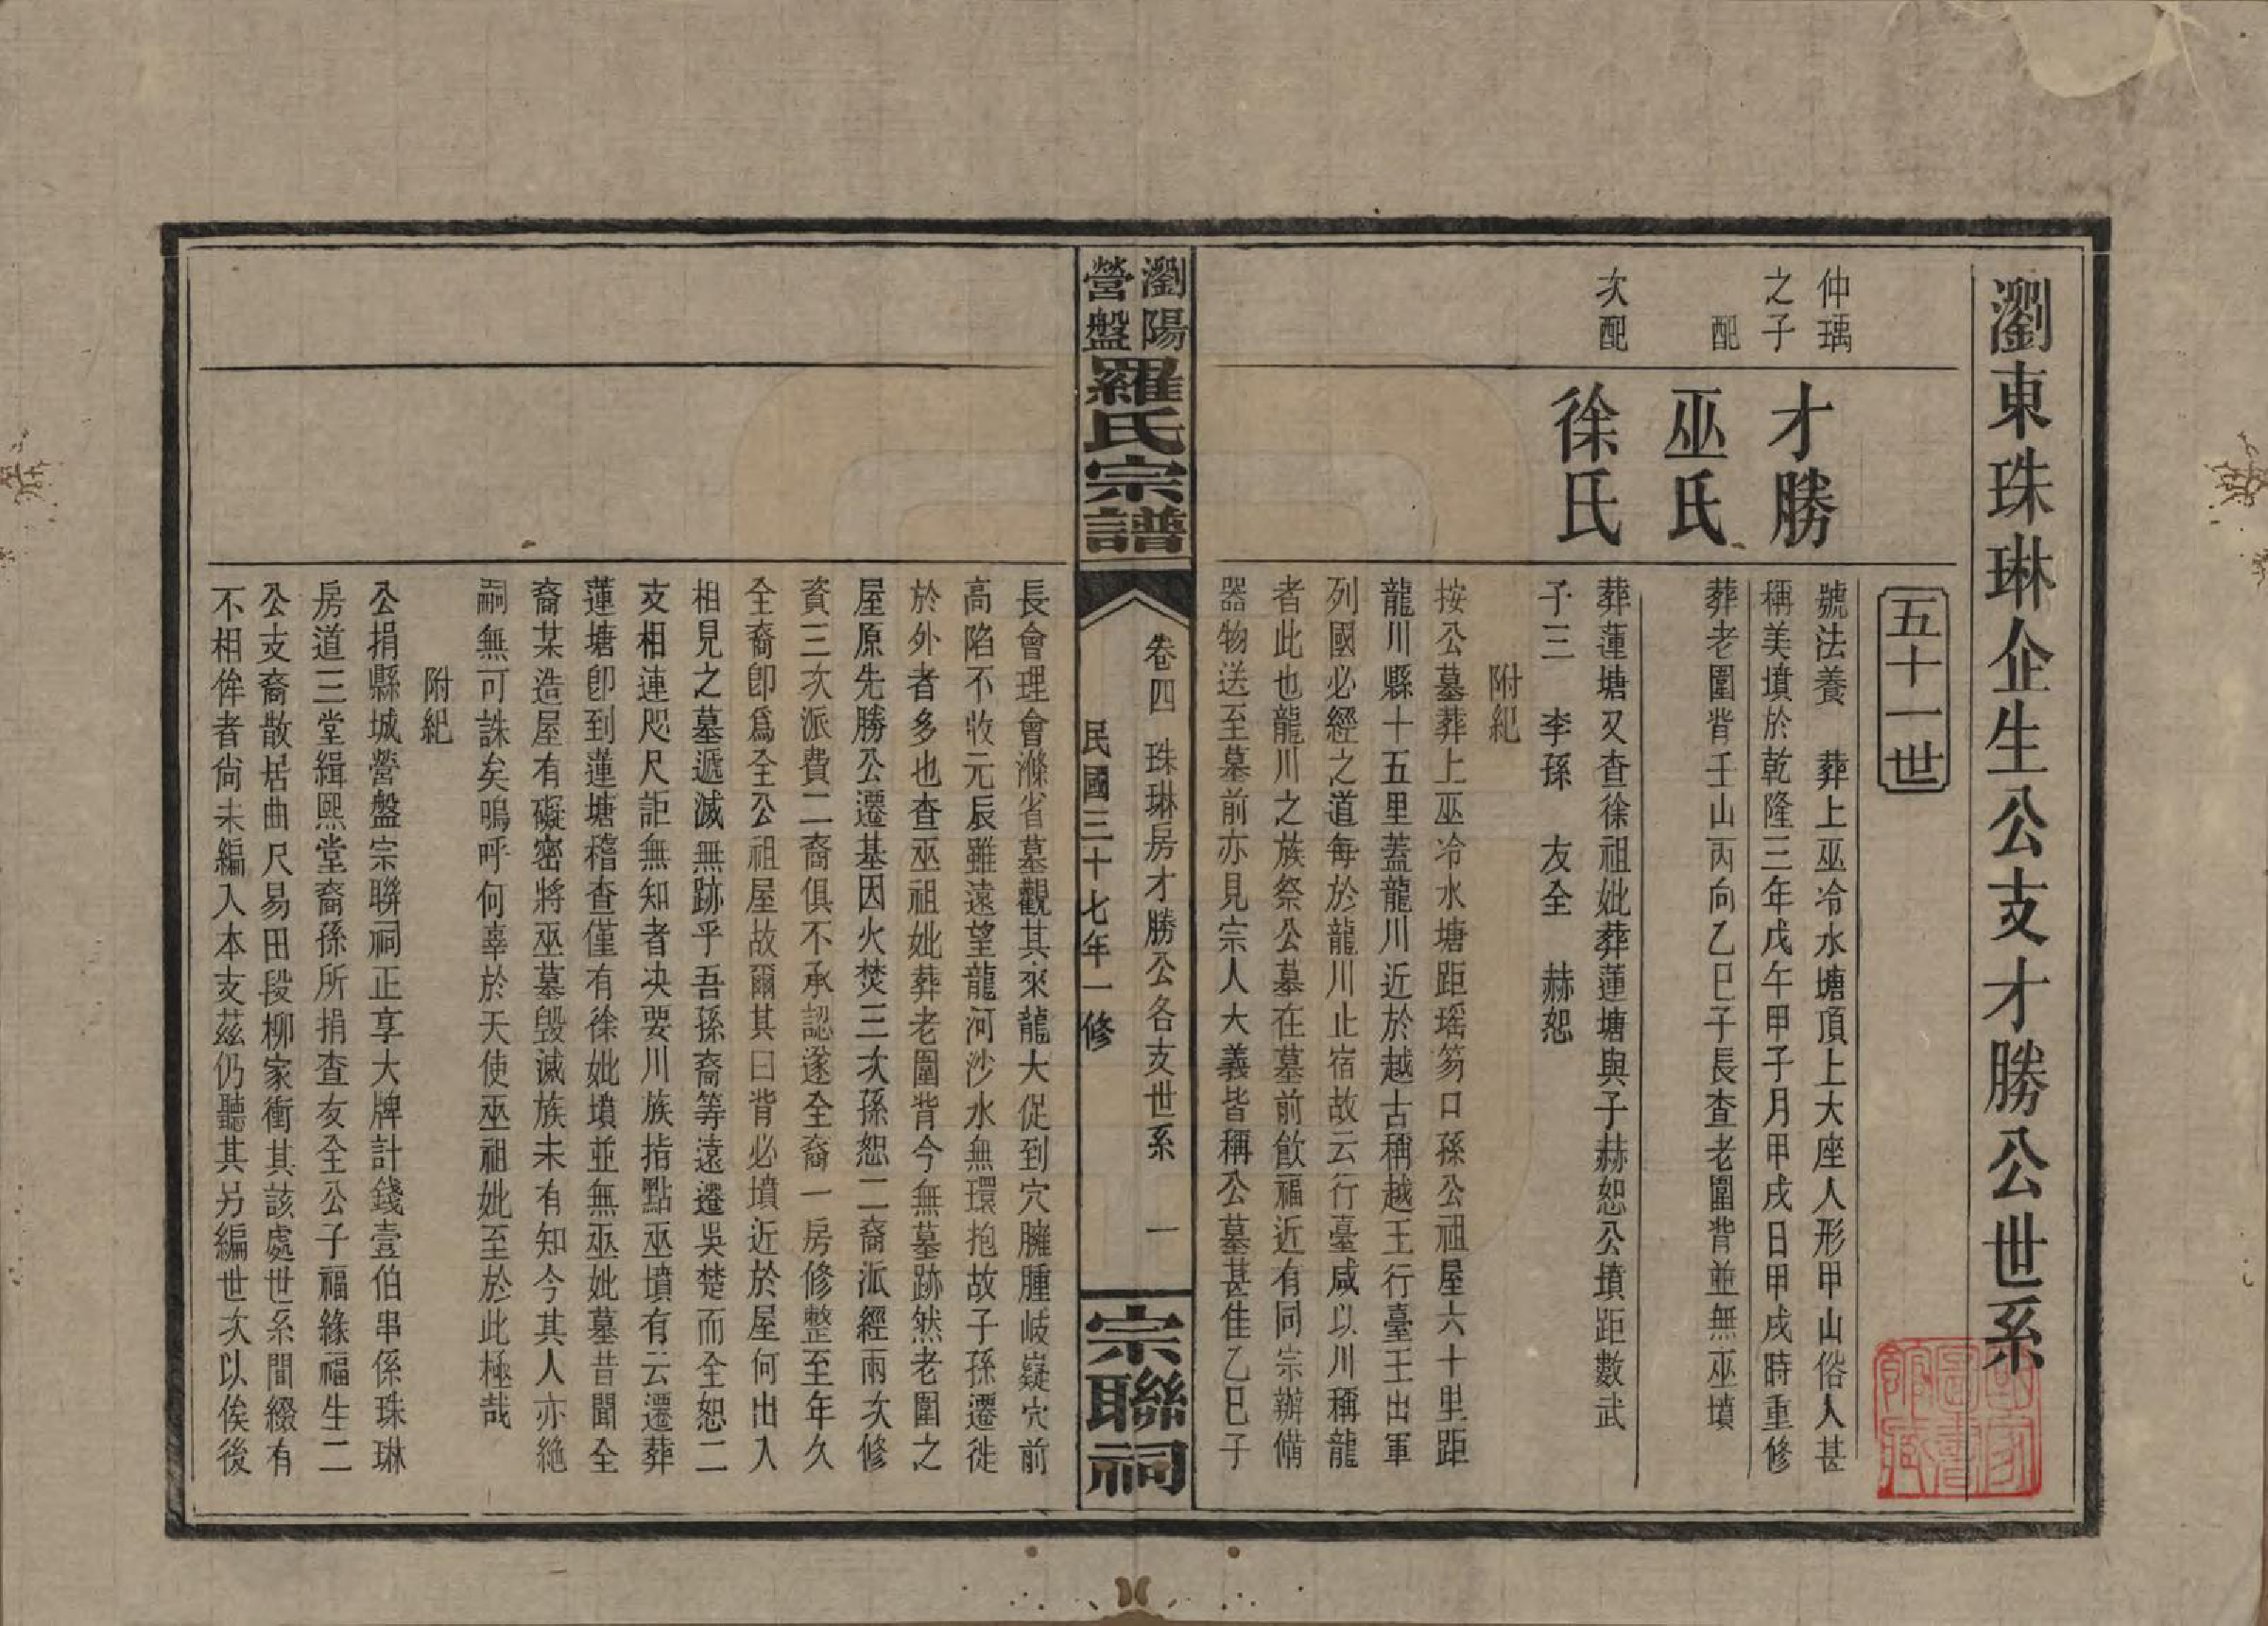 瀏東珠琳企生公支才勝公世系
五十一世
仲瑀
之子
才勝
號法養　葬上巫冷水塘頂上大座人形甲山俗人甚
稱美墳於乾隆三年戊午甲子月甲戌日甲戌時重修
配
巫氏
葬老圍背壬山丙向乙巳子長查老圍背並無巫墳
次配
徐氏
葬蓮塘又查徐祖妣葬蓮塘與子赫恕公墳距數武
子三　李孫　友全　赫恕
附紀
按公墓葬上巫冷水塘距瑶笏口孫公祖屋六十里距
龍川縣十五里蓋龍川近於越古稱越王行臺王出軍
列國必經之道每於龍川止宿故云行臺咸以川稱龍
者此也龍川之族祭公墓在墓前飮福近有同宗辦備
器物送至墓前亦見宗人大義皆稱公墓甚佳乙巳子
瀏陽
營盤
羅氏宗譜
卷四　珠琳房才勝公各支世系　一
民國三十七年一修
宗聯祠
長會理會滌省墓觀其來龍大促到穴臃腫岐嶷穴前
高陷不收元辰雖遠望龍河沙水無環抱故子孫遷徙
於外者多也查巫祖妣葬老圍背今無墓跡然老圍之
屋原先勝公遷基因火焚三次孫恕二裔派經兩次修
資三次派費二裔俱不承認遂全裔一房修整至年久
全裔卽爲全公祖屋故爾其曰背必墳近於屋何出入
相見之墓遞滅無跡乎吾孫裔等遠遷吳楚而全恕二
支相連咫尺詎無知者决要川族指點巫墳有云遷葬
蓮塘卽到蓮塘稽查僅有徐妣墳並無巫妣墓昔聞全
裔某造屋有礙密將巫墓毁滅族未有知今其人亦絶
嗣無可誅矣嗚呼何辜於天使巫祖妣至於此極哉
附紀
公捐縣城營盤宗聯祠正享大牌計錢壹伯串係珠琳
房道三堂緝熙堂裔孫所捐查友全公子福緣福生二
公支裔散居曲尺易田段柳家衝其該處世系間綴有
不相侔者尙未編入本支茲仍聽其另編世次以俟後